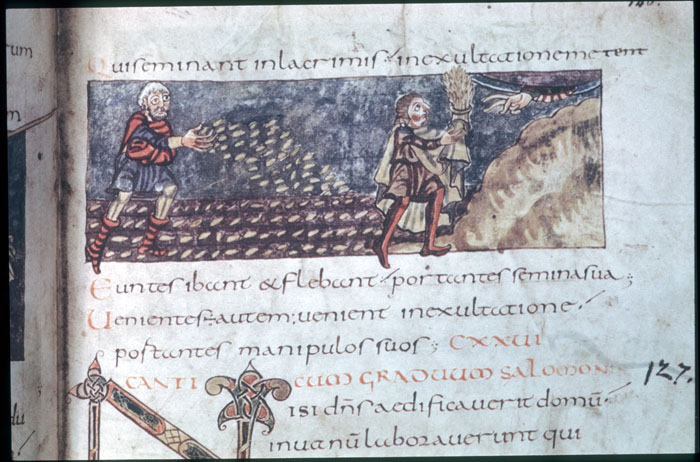 Qui seminant in lacrimis in exultatione metent
Euntes ibant & flebant portantes semina sua;
Uenientes autem; uenient in exultatione
portantes manipulos suos; CXXVI
CANTICUM GRADUUM SALOMON
127.
Nisi dn̄s aedificauerit domū
inuanū laborauerunt qui